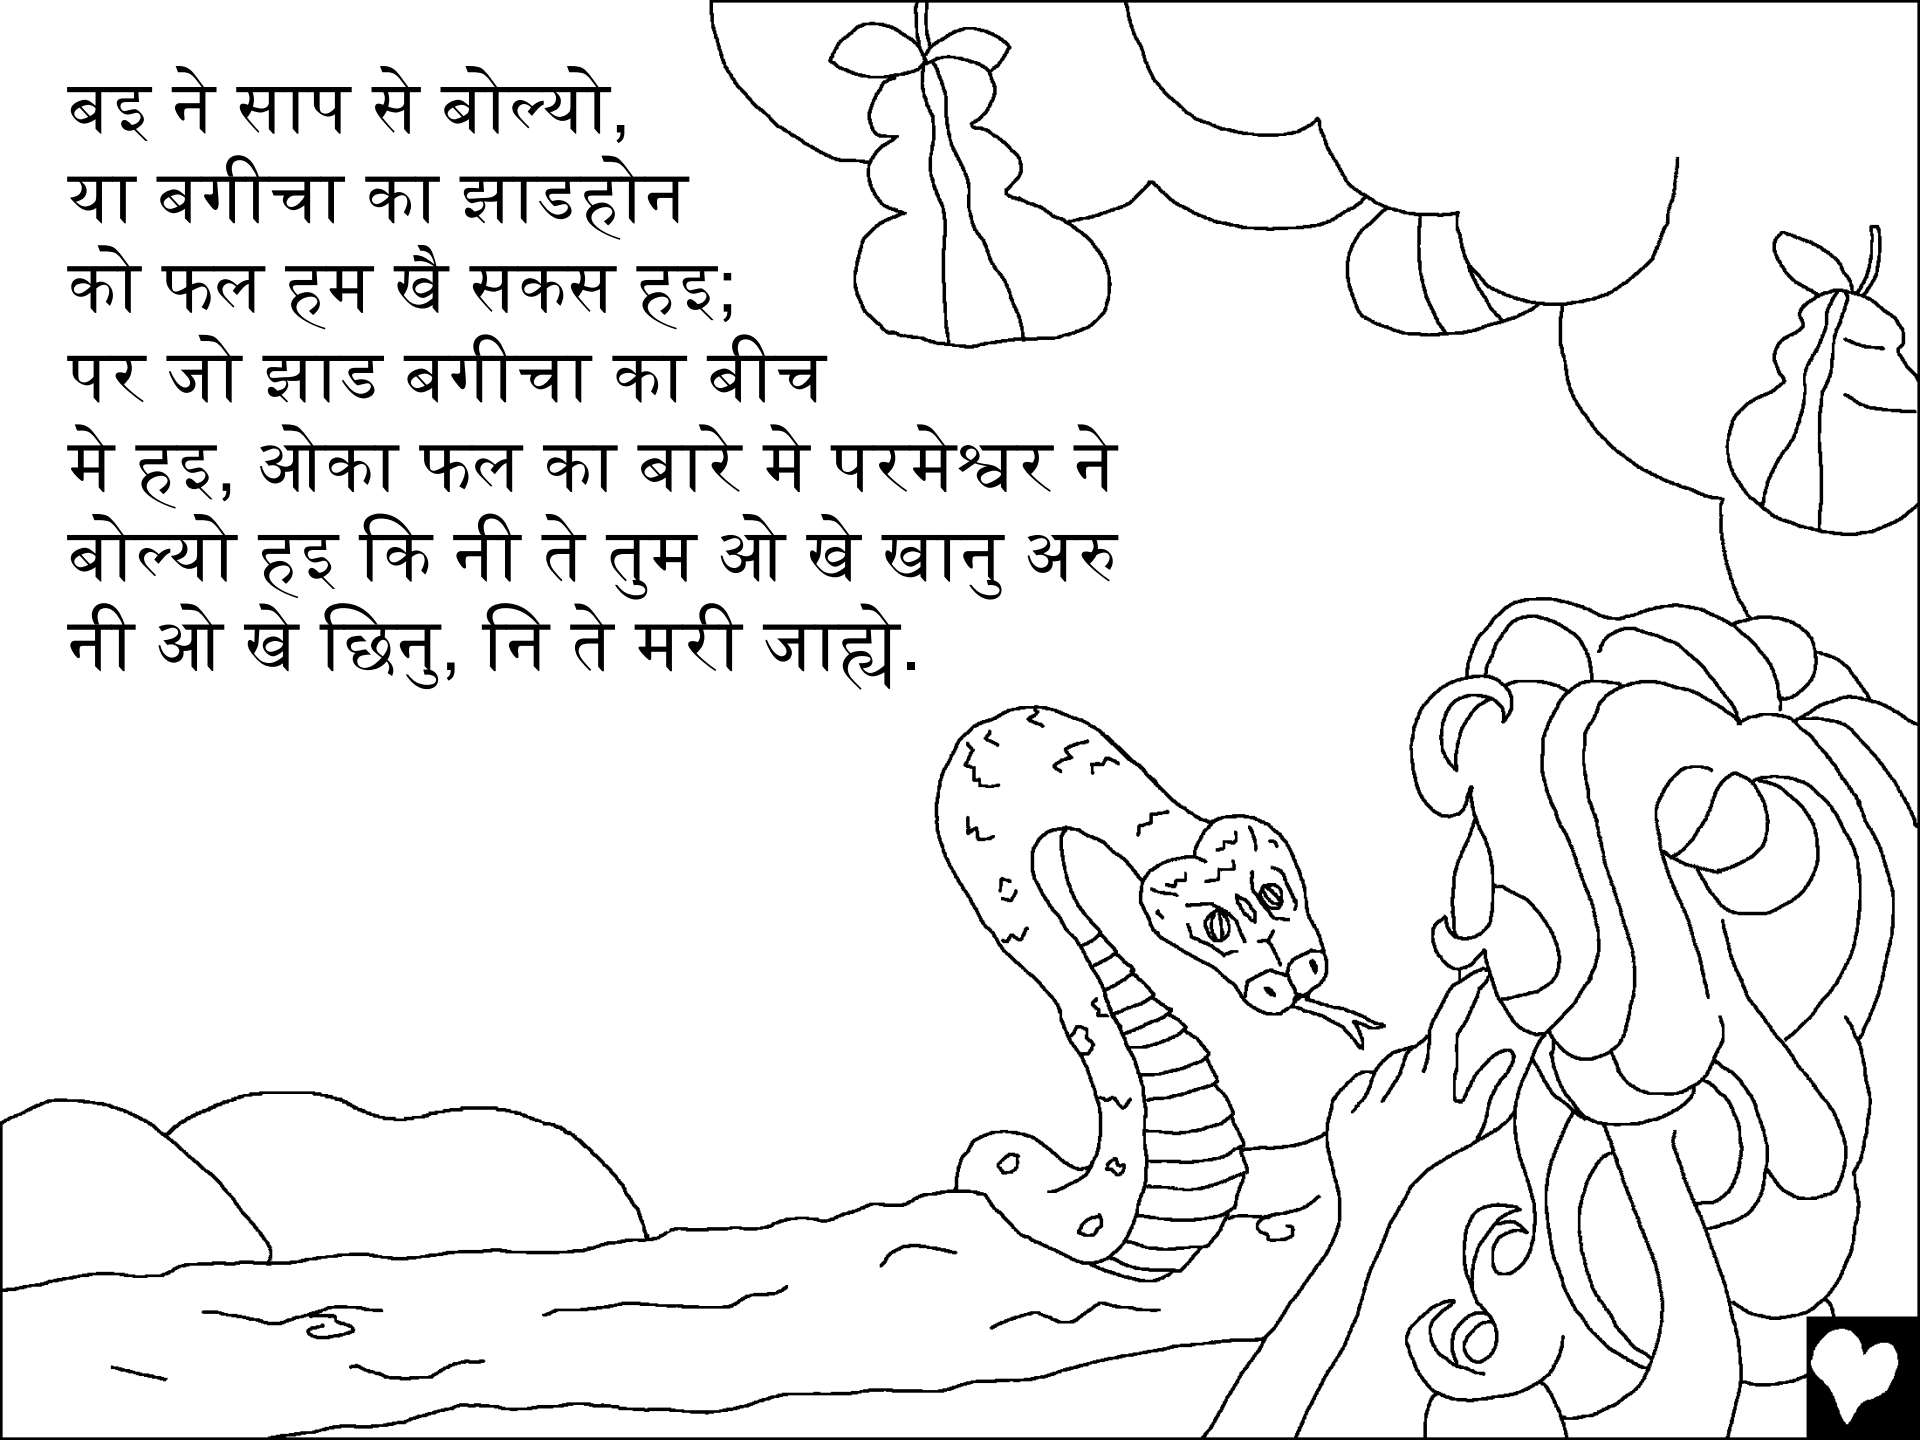 बइ ने साप से बोल्यो,
या बगीचा का झाडहोन
को फल हम खै सकस हइ;
पर जो झाड बगीचा का बीच
मे हइ, ओका फल का बारे मे परमेश्वर ने
बोल्यो हइ कि नी ते तुम ओ खे खानु अरु
नी ओ खे छिनु, नि ते मरी जाह्ये.